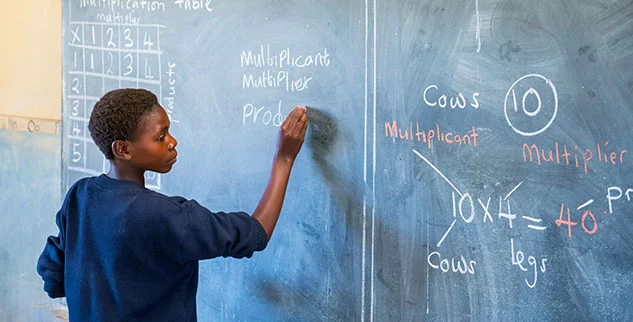 Multiplication table
multiplier
X 1 2 3 4
1 1 2 3 4
2
3
4
5
products
Multiplicant
Multiplier
prod
Cows 10
Multiplicant
Multiplier
10 x 4 = 40
Pr
Cows
Legs